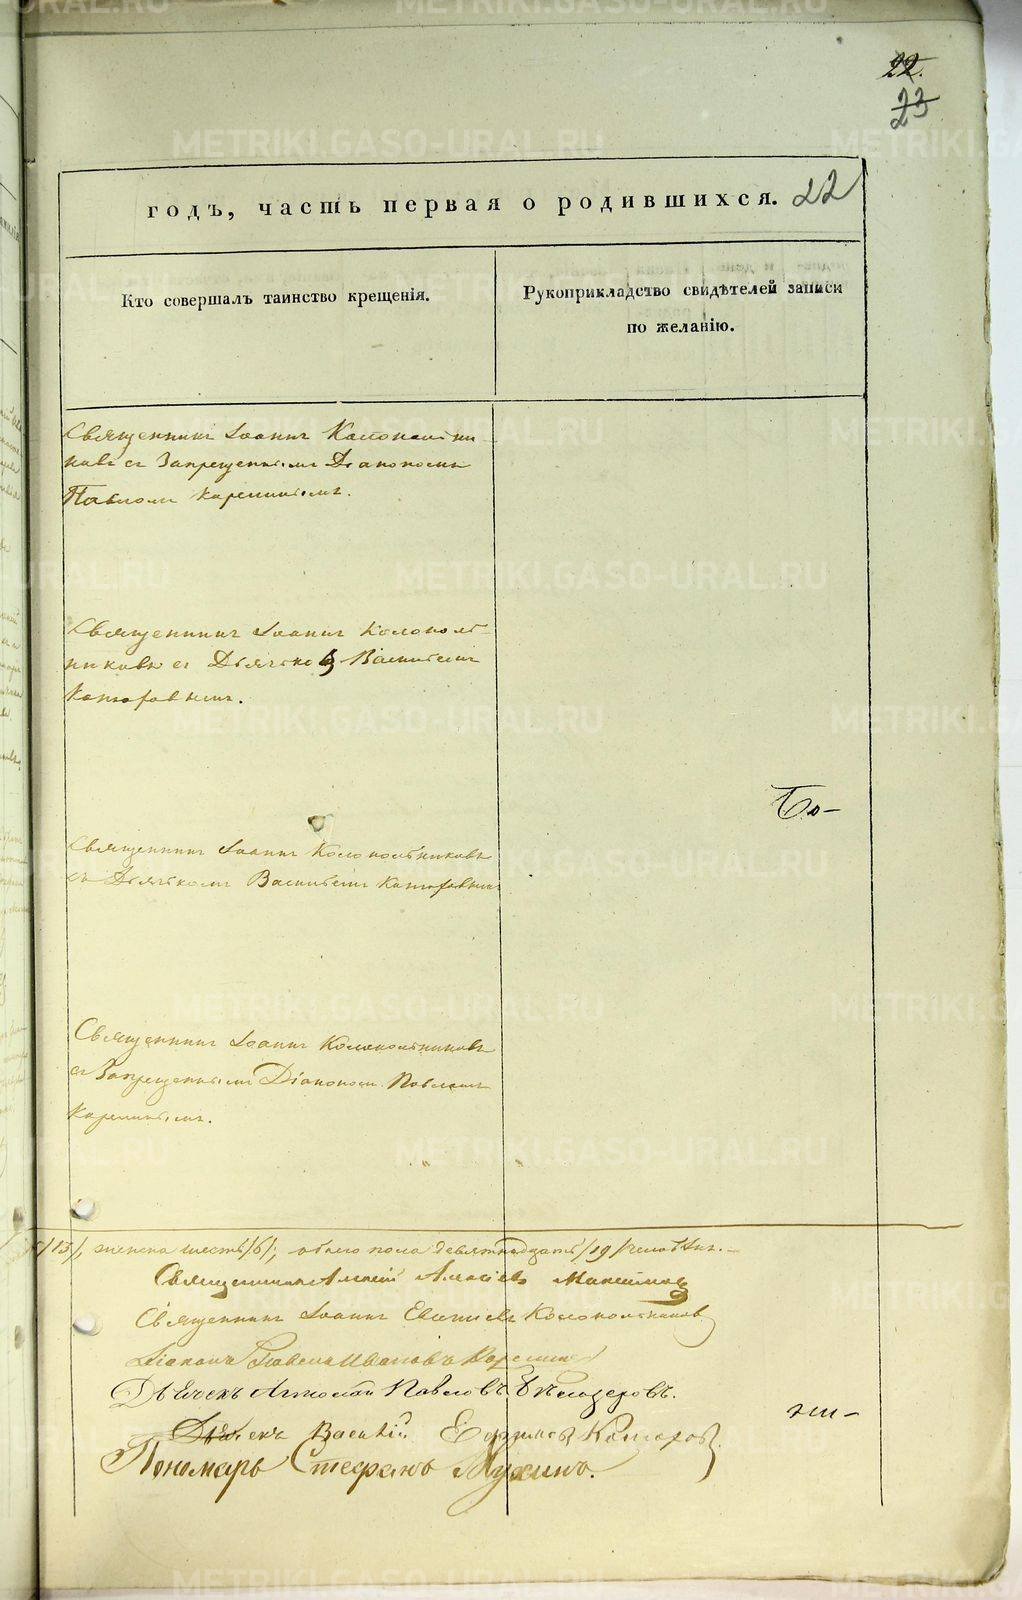 22.
23
годъ, часть первая о родившихся. 22
Кто совершалъ таинство крещенія.
Рукоприкладство свидѣтелей записи
по желанію.
Священникъ Іоаннъ Колокольни-
ковъ съ Запрещеннымъ Діакономъ
Павломъ
Священникъ Іоаннъ Колоколь-
никовъ съ Дьячкомъ Василіемъ
Комаровымъ.
Бо-
Священникъ Іоаннъ Колокольниковъ
съ Дьячкомъ Василіемъ Комаровымъ
Священникъ Іоаннъ Колокольниковъ
съ Запрещеннымъ Діакономъ Павломъ
/13/, женска шесть /6/; обоего пола девятнадцать /19/ человѣкъ.
Священникъ Алексій Максимовъ
Священникъ Іоаннъ Евѳиміевъ Колокольниковъ
Діаконъ Павелъ Ивановъ
Дьячекъ Павловъ Бѣлозеровъ.
Дьячекъ Василій Ефимовъ Комаровъ.
Пономарь Стефанъ Мухинъ.
METRIKI.GASO-URAL.RU